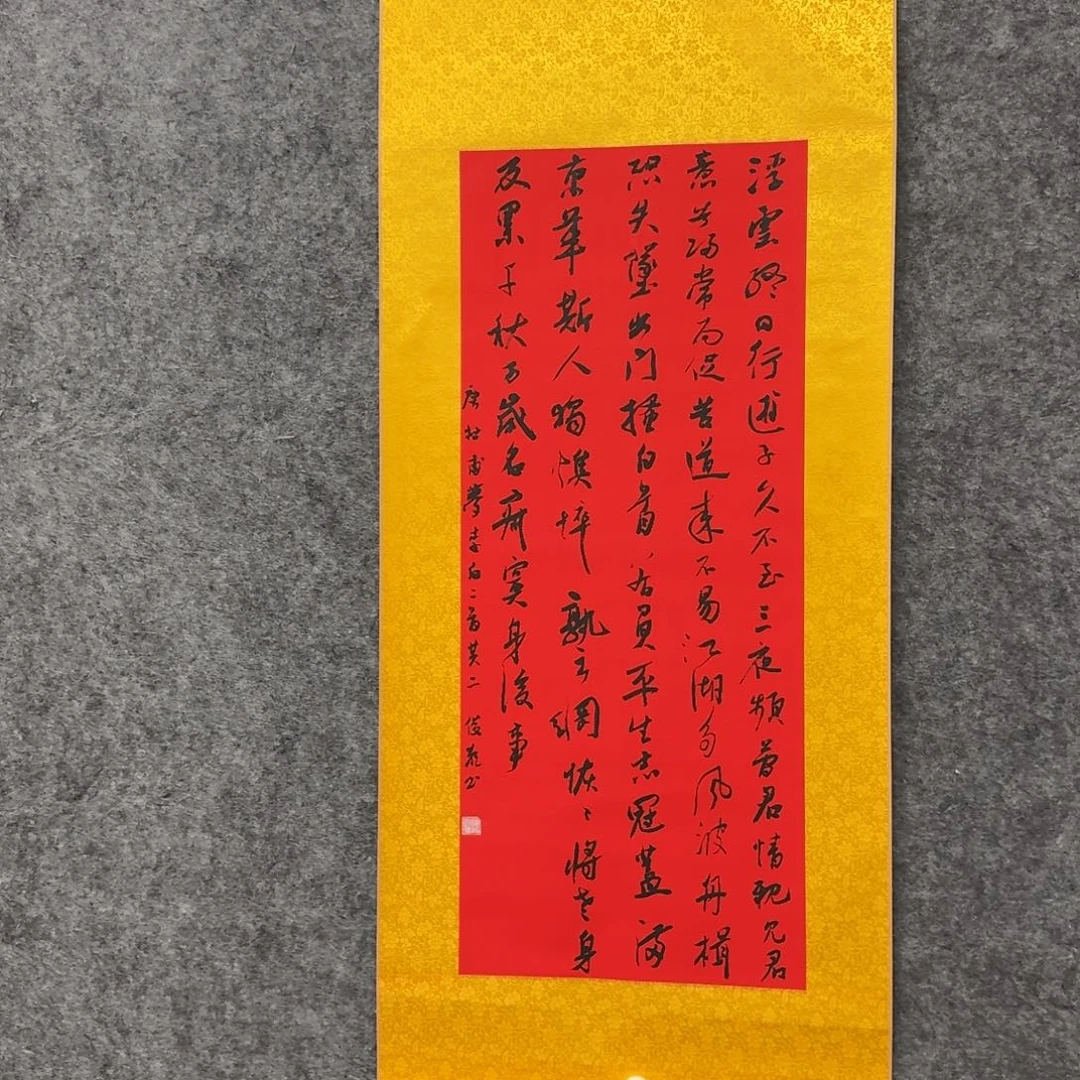 浮雲終日行遊子久不至三夜頻夢君情親見君
意告歸常局促苦道來不易江湖多風波舟楫
恐失墜出門搔白首若負平生志冠蓋滿
京華斯人獨憔悴孰云網恢〻將老身
反累千秋万歲名寂寞身後事
唐杜甫夢李白二首其二 俊